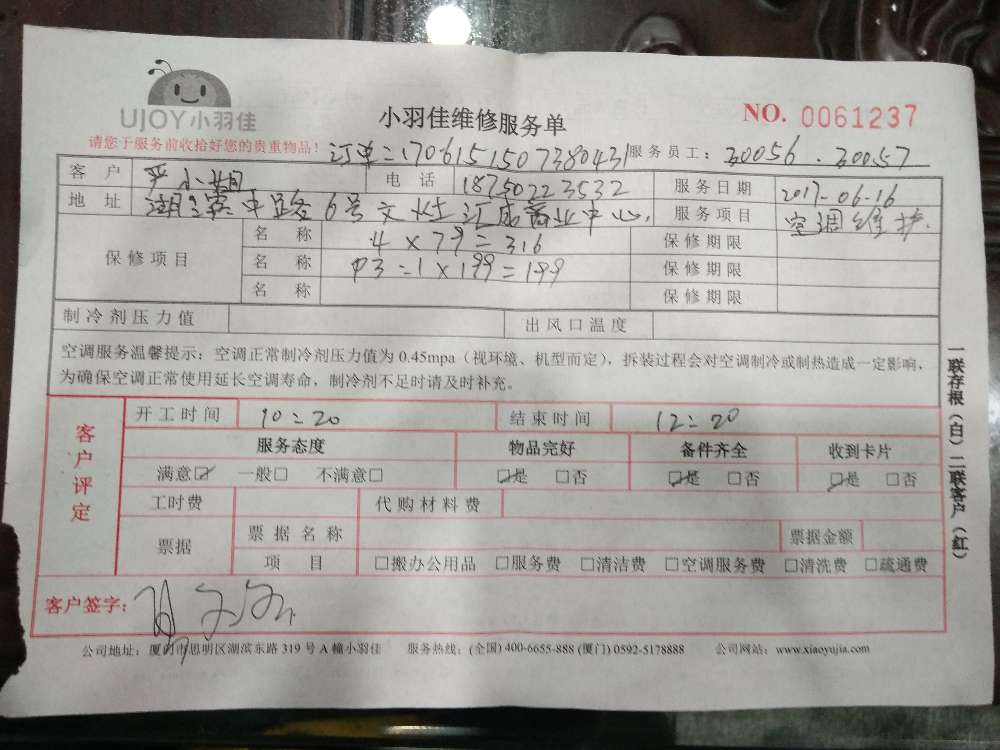 UJOY小羽佳
小羽佳维修服务单
NO. 0061237
请您于服务前收拾好您的贵重物品！
订单:1706151507380431
服务员工：30056.30057
客户 严小姐 电话 18750223532 服务日期 2017-06-16
地址 湖滨中路6号文灶汇成商业中心. 服务项目 空调维护.
保修项目
名称 4×79=316 保修期限
名称 P3=1×199=199 保修期限
名称 保修期限
制冷剂压力值 出风口温度
空调服务温馨提示：空调正常制冷剂压力值为0.45mpa（视环境、机型而定），拆装过程会对空调制冷或制热造成一定影响，
为确保空调正常使用延长空调寿命，制冷剂不足时请及时补充。
客户评定
开工时间 10:20 结束时间 12:20
服务态度 物品完好 备件齐全 收到卡片
满意☑ 一般□ 不满意□ ☑是 □否 ☑是 □否 ☑是 □否
工时费 代购材料费
票据 票据名称 票据金额
项目 □搬办公用品 □服务费 □清洁费 □空调服务费 □清洗费 □疏通费
客户签字：
公司地址：厦门市思明区湖滨东路319号A幢小羽佳 服务热线：(全国) 400-6655-888 (厦门) 0592-5178888 公司网站：www.xiaoyujia.com
一联存根（白）二联客户（红）